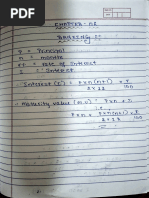 CHAPTER-02
BANKING :-
P = Principal
n = months
r = rate of Interest
I = Interest
Interest (I) = P × n(n+1) × r
2 × 12 100
Maturity value (M.V) = P × n + I
= P × n + P × n(n+1) × r
2 × 12 100